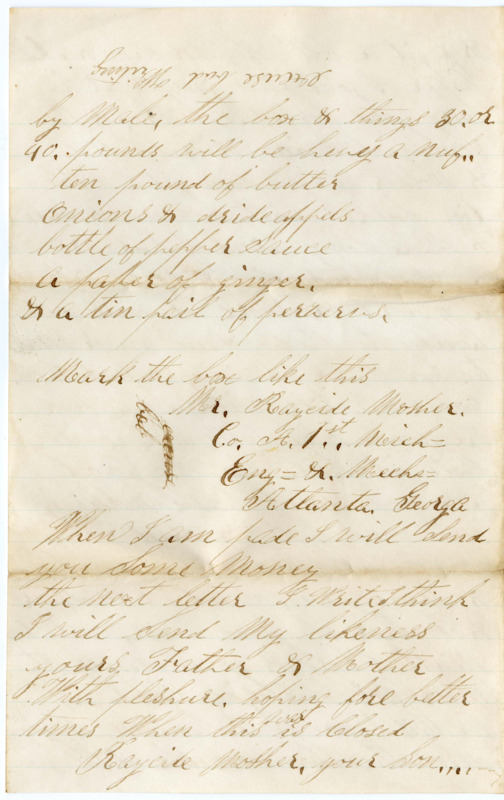 Excuse bad Writing
by Male, the box & things 30. or
40. pounds will be hevey a nuf..
ten pound of butter
onions & dride appels
bottle of pepper sauce
a paper of ginger.
& a tin pail of perservs.
Mark the box like this
Mr. Raycide Mosher.
Co. H. 1st.. Mich=
Eng= & Mechs=
Atlanta. Georga
bad
When I am pade I will Send
you Some Money
the next letter I. Write I think
I will Send My likeness
yours Father & Mother
With pleshure. hoping fore better
times When this is Closed
Raycide Mosher, your Son....